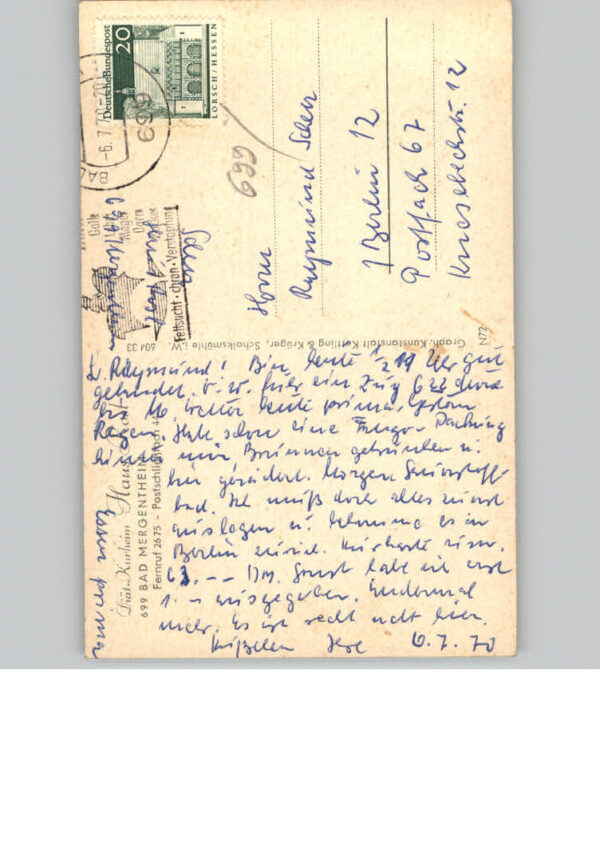 Deutsche Bundespost
20
LORSCH / HESSEN
-6.7.70-20
699
BAD
Galle
Fettsucht · chron. Verstopfung
699
Herrn
Raymund
1 Berlin 12
Postfach 67
Knesebeckstr. 12
Graph. Kunstanstalt Kettling & Krüger, Schalksmühle i.W. 604 33
N72
Diät-Kurheim Haus
699 BAD MERGENTHEIM
Fernruf 2675 - Postschließfach 44
L. Raymund! Bin heute 1/2 Uhr gut
gelandet. ein Zug 622
Wetter heute prima, gestern
Regen. Hab schon eine Fango-Packung
hinter mir Brunnen getrunken u.
Morgen Sauerstoff
bad. Ich muß doch alles zuerst
auslegen u. bekomme es in
Berlin zurück. Kurkarte
63.-- DM. Sonst habe ich erst
1.-- ausgegeben.
mehr. Es ist recht nett hier.
6.7.70
Essen prima